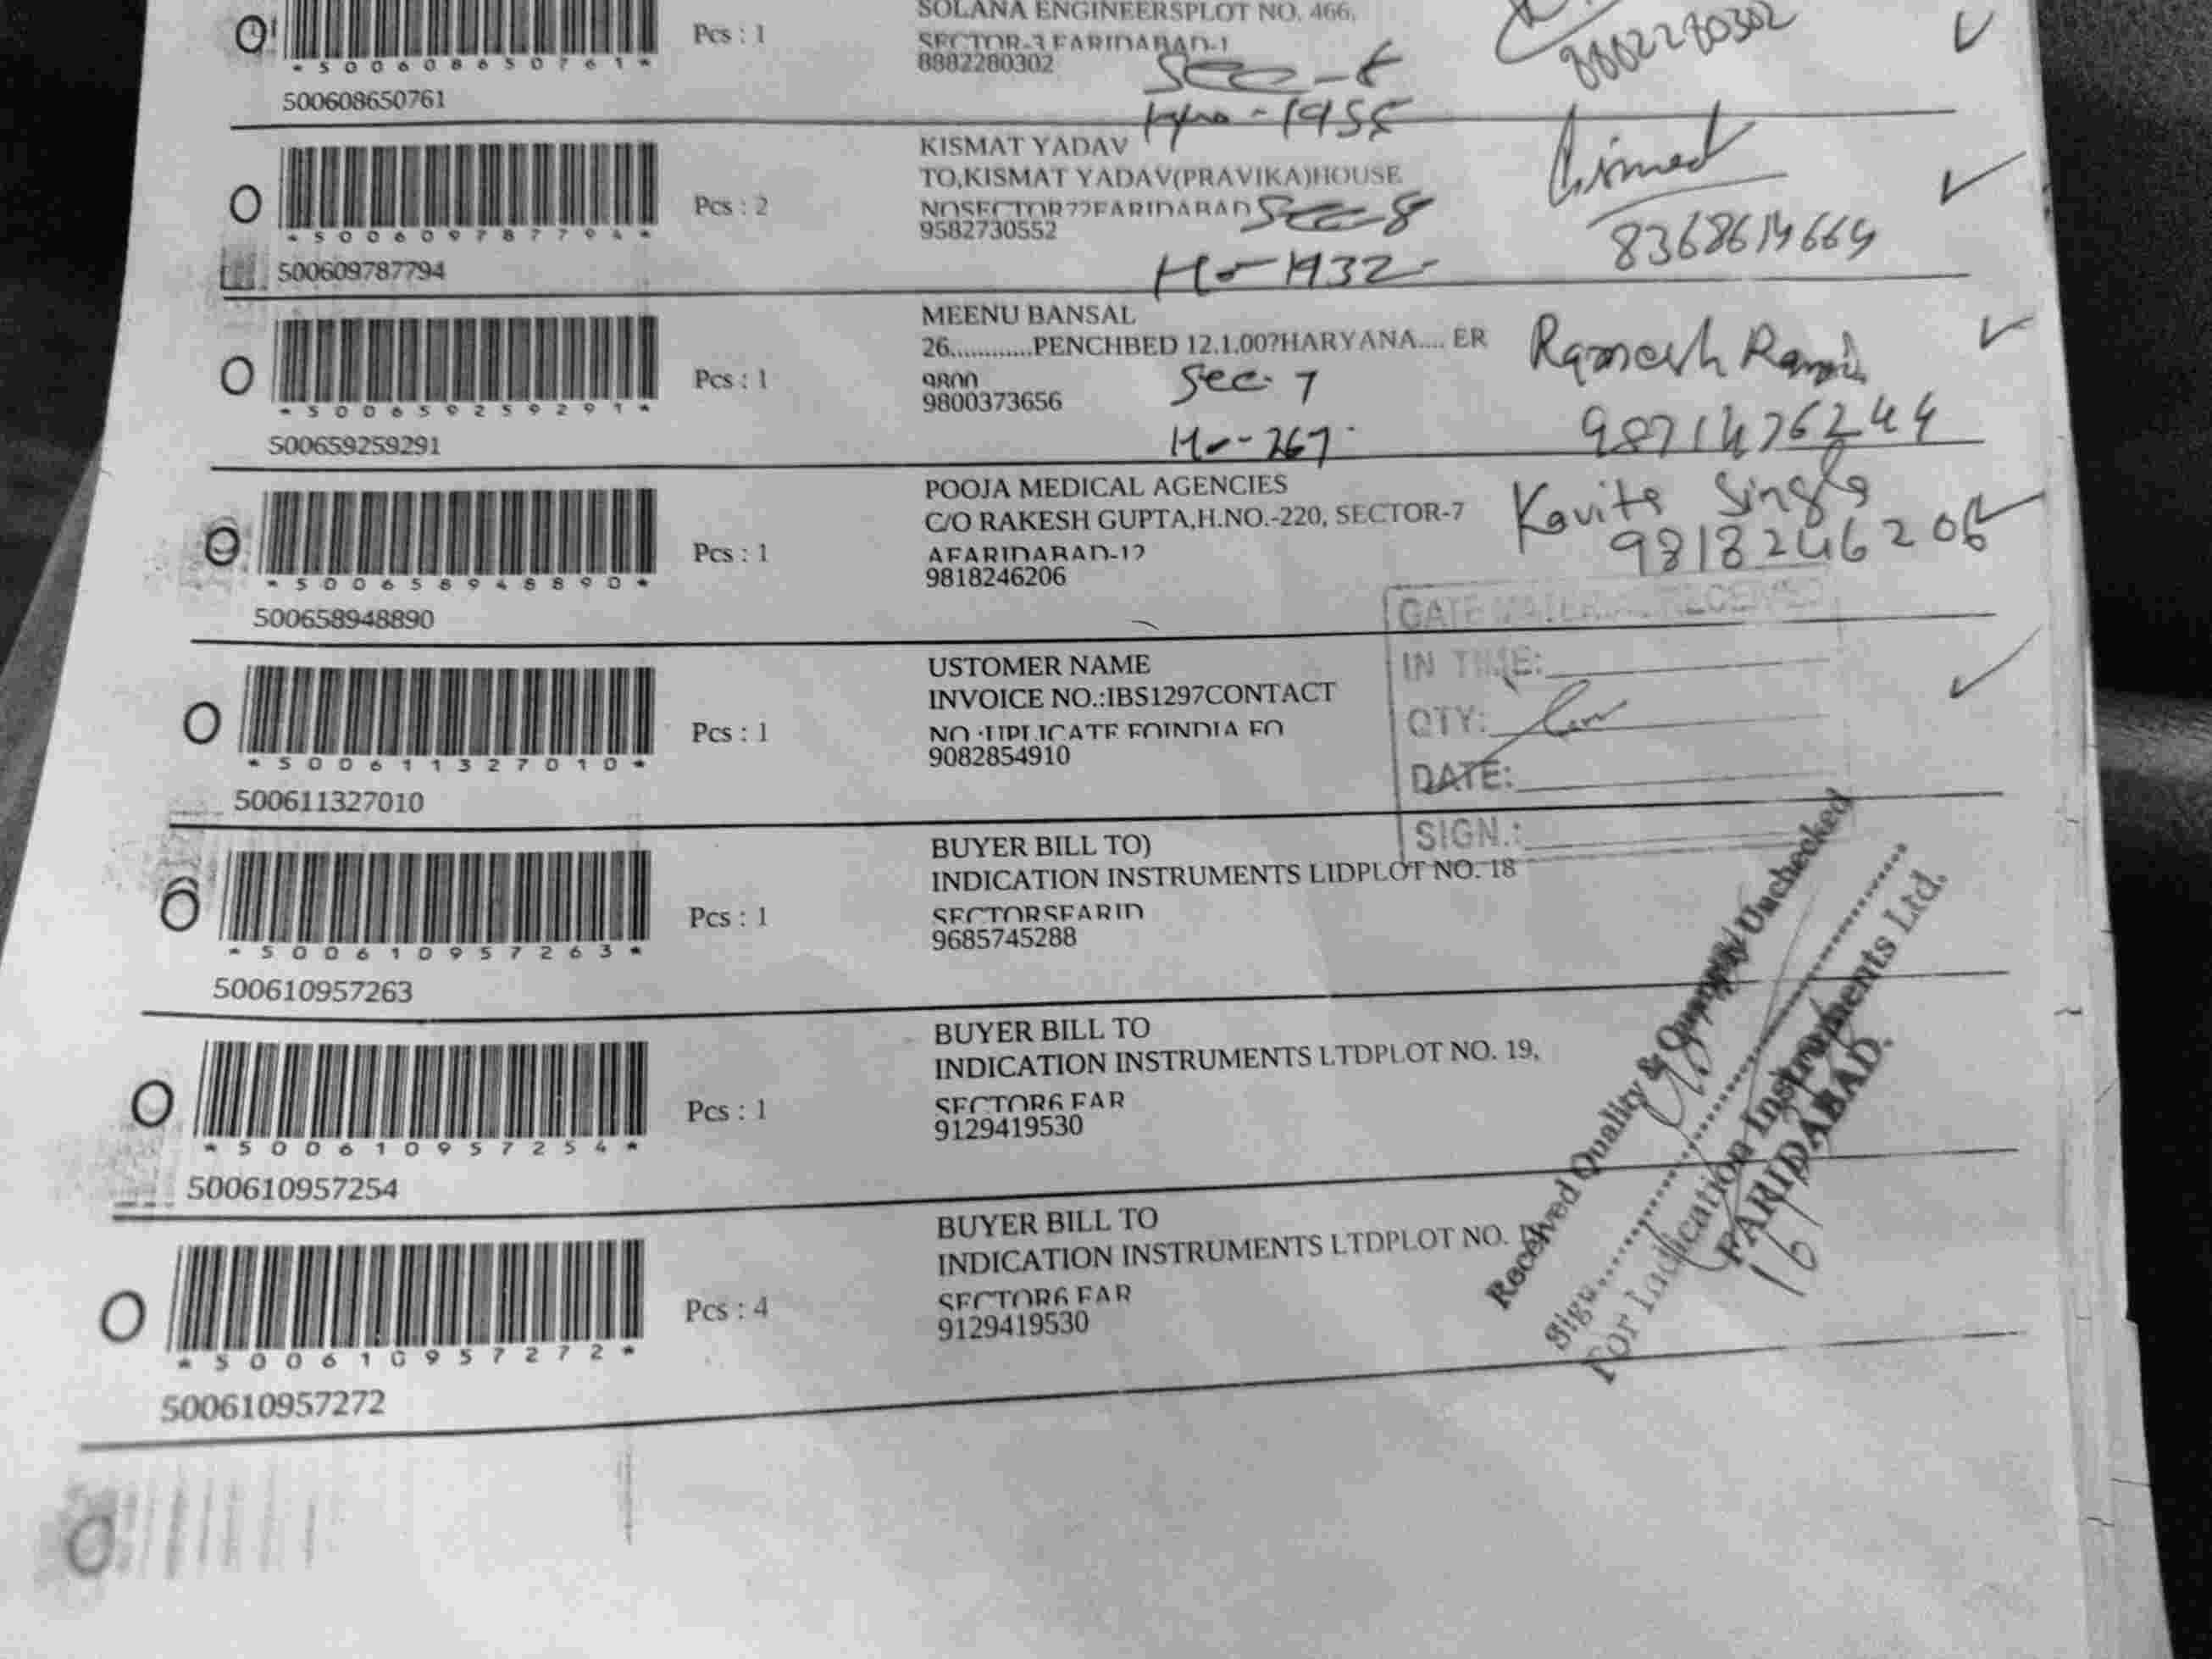 SOLANA ENGINEERSPLOT NO. 466,
Pcs : 1
SECTOR-3 FARIDABAD-1
8882280302
8882280302
*500608650761*
500608650761
1955
KISMAT YADAV
TO,KISMAT YADAV(PRAVIKA)HOUSE
Pcs : 2
NOSECTOR??FARIDABAD
Sec-8
9582730552
8368614664
*500609787794*
500609787794
H-1932
MEENU BANSAL
26............PENCHBED 12.1.00?HARYANA.... ER
Ramesh
Pcs : 1
9800
Sec-7
9800373656
9871476244
*500659259291*
500659259291
H-267
POOJA MEDICAL AGENCIES
C/O RAKESH GUPTA,H.NO.-220, SECTOR-7
Kavita Singla
Pcs : 1
AFARIDABAD-12
9818246206
9818246206
*500658948890*
500658948890
GATE MATERIAL RECEIVED
USTOMER NAME
IN TIME:
INVOICE NO.:IBS1297CONTACT
Pcs : 1
NO :UPLICATE FOINDIA FO
QTY:
9082854910
DATE:
*500611327010*
500611327010
SIGN.:
BUYER BILL TO)
INDICATION INSTRUMENTS LIDPLOT NO. 18
Pcs : 1
SECTORSFARID
9685745288
*500610957263*
500610957263
BUYER BILL TO
INDICATION INSTRUMENTS LTDPLOT NO. 19,
Pcs : 1
SECTOR6 FAR
9129419530
*500610957254*
500610957254
BUYER BILL TO
INDICATION INSTRUMENTS LTDPLOT NO.
Pcs : 4
SECTOR6 FAR
9129419530
*500610957272*
500610957272
Received Quality & Quantity Unchecked
Sign
For Indication Instruments Ltd.
FARIDABAD.